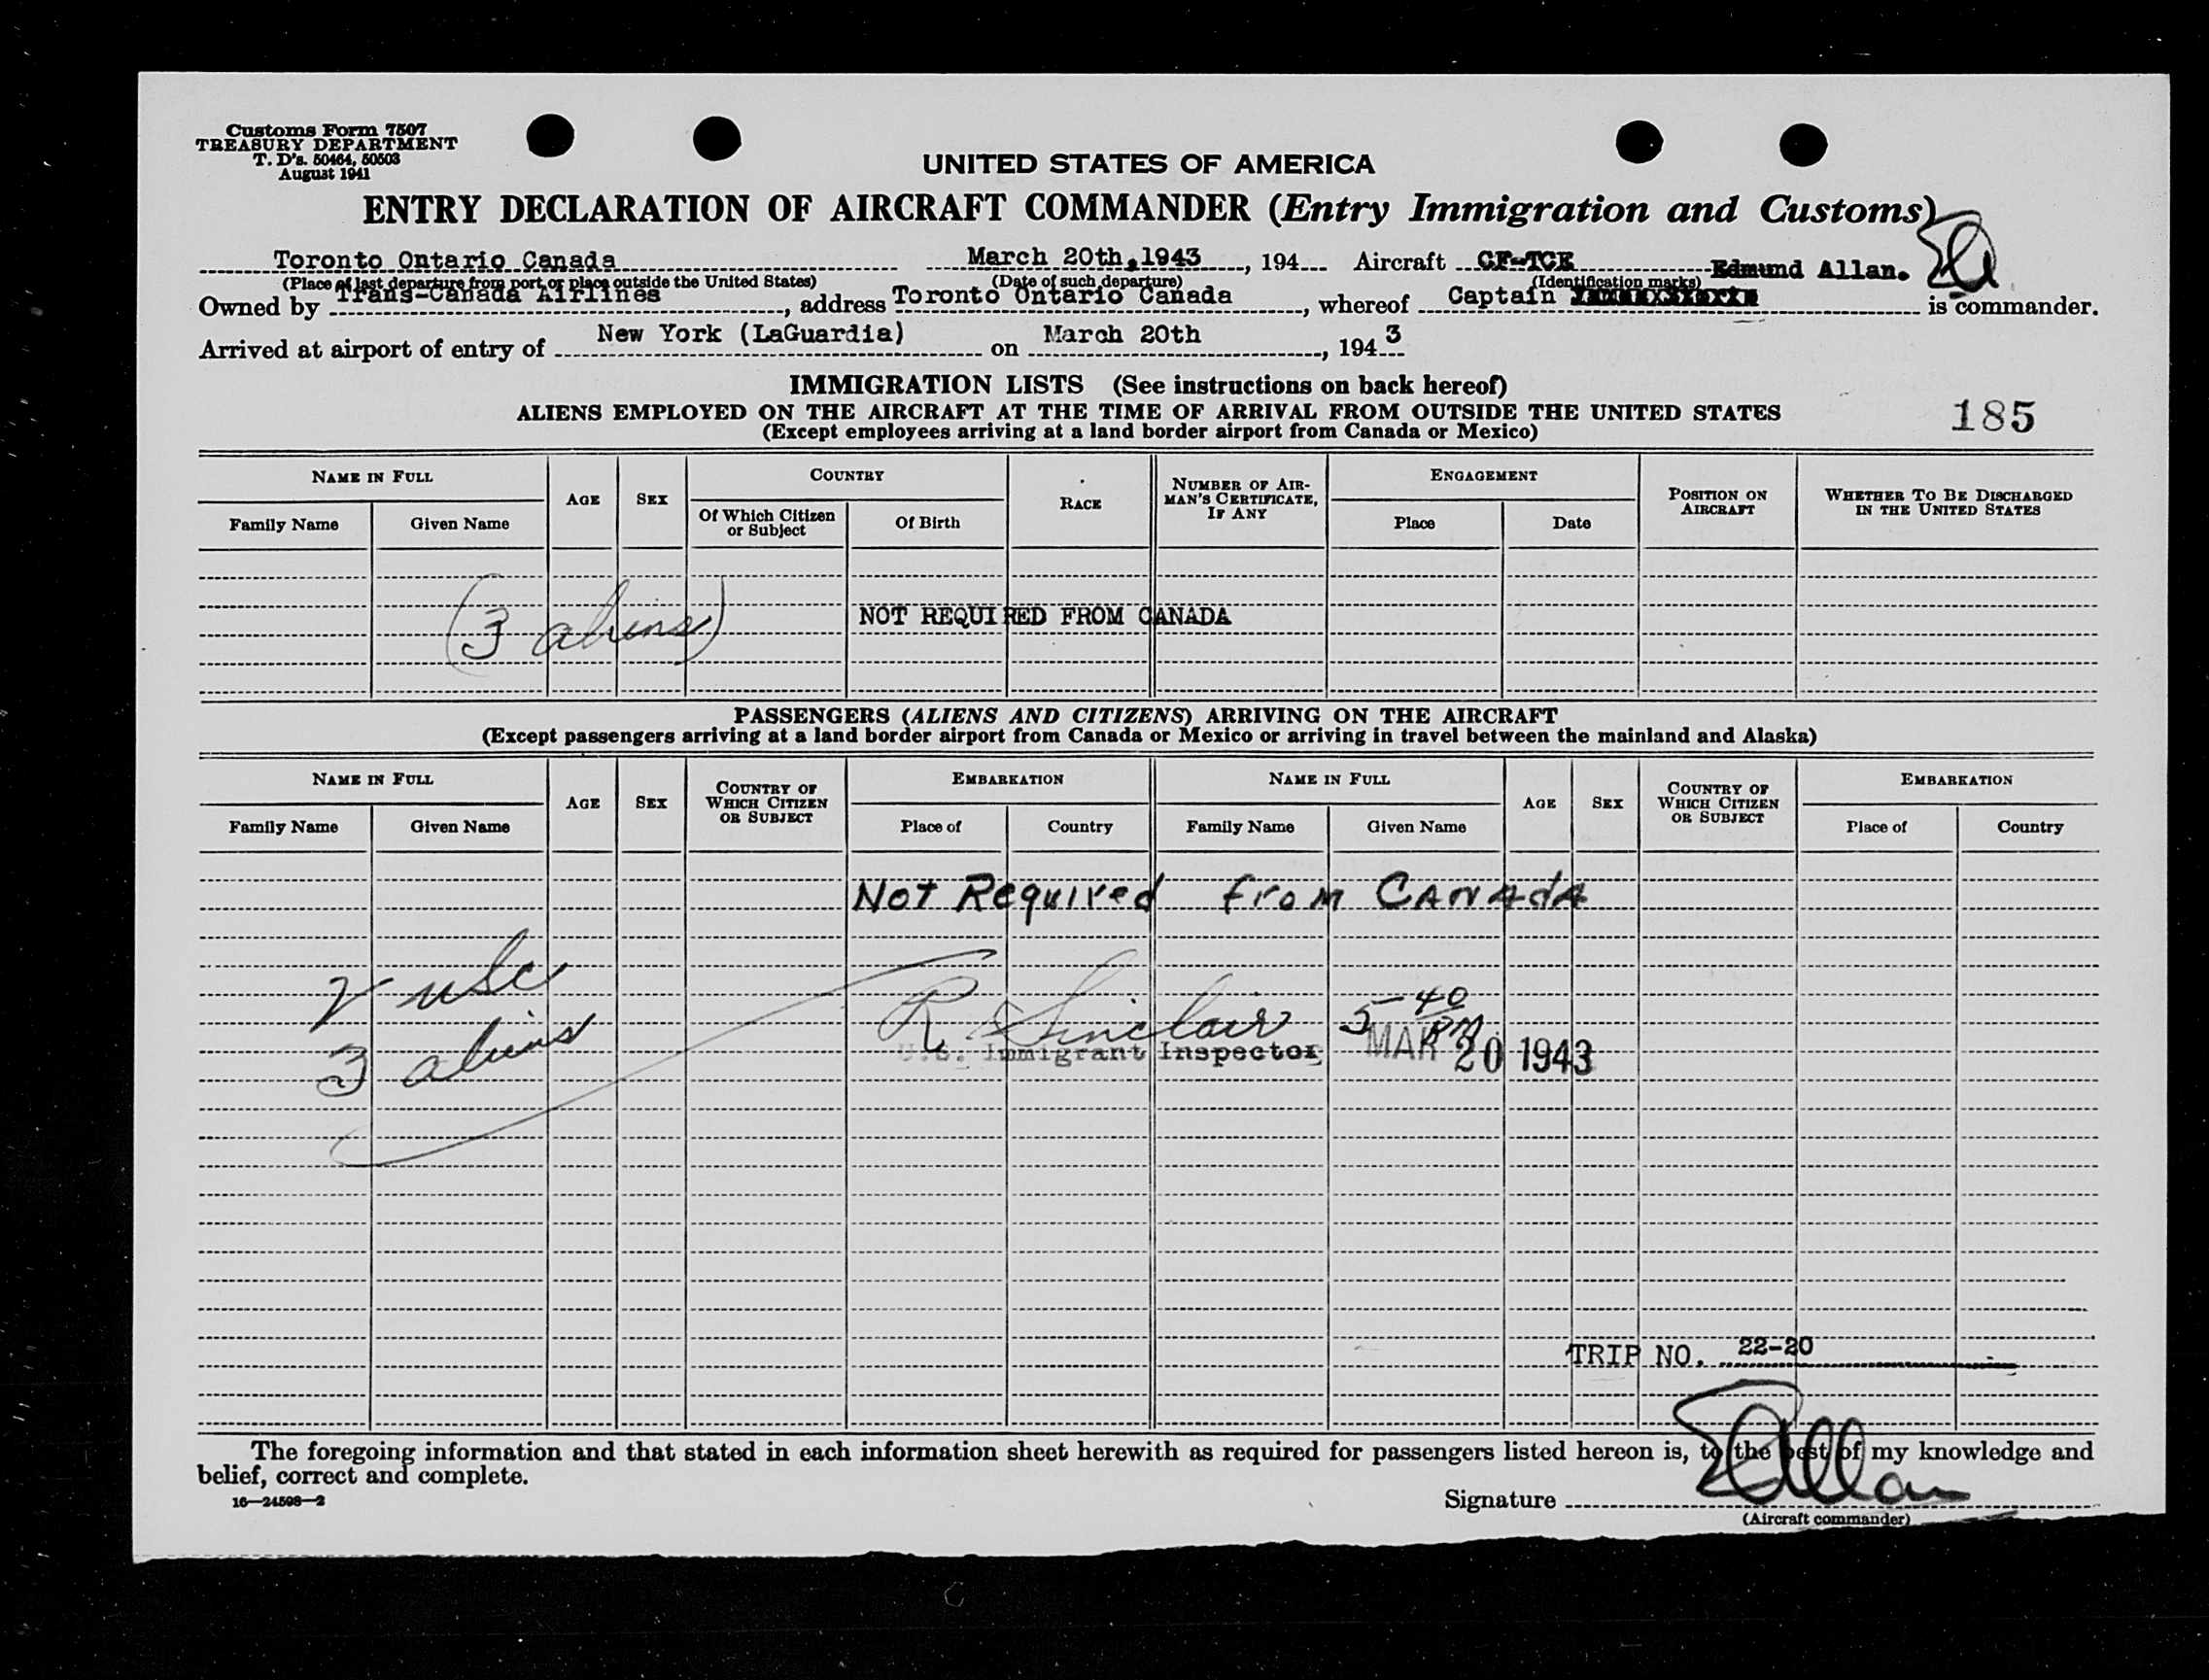 Customs Form 7507
TREASURY DEPARTMENT
T. D's. 50464, 50503
August 1941
UNITED STATES OF AMERICA
ENTRY DECLARATION OF AIRCRAFT COMMANDER (Entry Immigration and Customs)
Toronto Ontario Canada March 20th,1943, 194 Aircraft CF-TCK Edmund Allan. EA
(Place of last departure from port or place outside the United States) (Date of such departure) (Identification marks)
Owned by Trans-Canada Airlines, address Toronto Ontario Canada, whereof Captain is commander.
Arrived at airport of entry of New York (LaGuardia) on March 20th, 1943
IMMIGRATION LISTS (See instructions on back hereof)
ALIENS EMPLOYED ON THE AIRCRAFT AT THE TIME OF ARRIVAL FROM OUTSIDE THE UNITED STATES
185
(Except employees arriving at a land border airport from Canada or Mexico)
NAME IN FULL AGE SEX COUNTRY RACE NUMBER OF AIRMAN'S CERTIFICATE, IF ANY ENGAGEMENT POSITION ON AIRCRAFT WHETHER TO BE DISCHARGED IN THE UNITED STATES
Family Name Given Name Of Which Citizen or Subject Of Birth Place Date
(3 aliens) NOT REQUIRED FROM CANADA
PASSENGERS (ALIENS AND CITIZENS) ARRIVING ON THE AIRCRAFT
(Except passengers arriving at a land border airport from Canada or Mexico or arriving in travel between the mainland and Alaska)
NAME IN FULL AGE SEX COUNTRY OF WHICH CITIZEN OR SUBJECT EMBARKATION NAME IN FULL AGE SEX COUNTRY OF WHICH CITIZEN OR SUBJECT EMBARKATION
Family Name Given Name Place of Country Family Name Given Name Place of Country
Not Required from CANAdA
usc
R Sinclair 5 40 PM
3 aliens
U.S. Immigrant Inspector MAR 20 1943
TRIP NO. 22-20
The foregoing information and that stated in each information sheet herewith as required for passengers listed hereon is, to the best of my knowledge and
belief, correct and complete.
16—24598—2
Signature EAllan
(Aircraft commander)